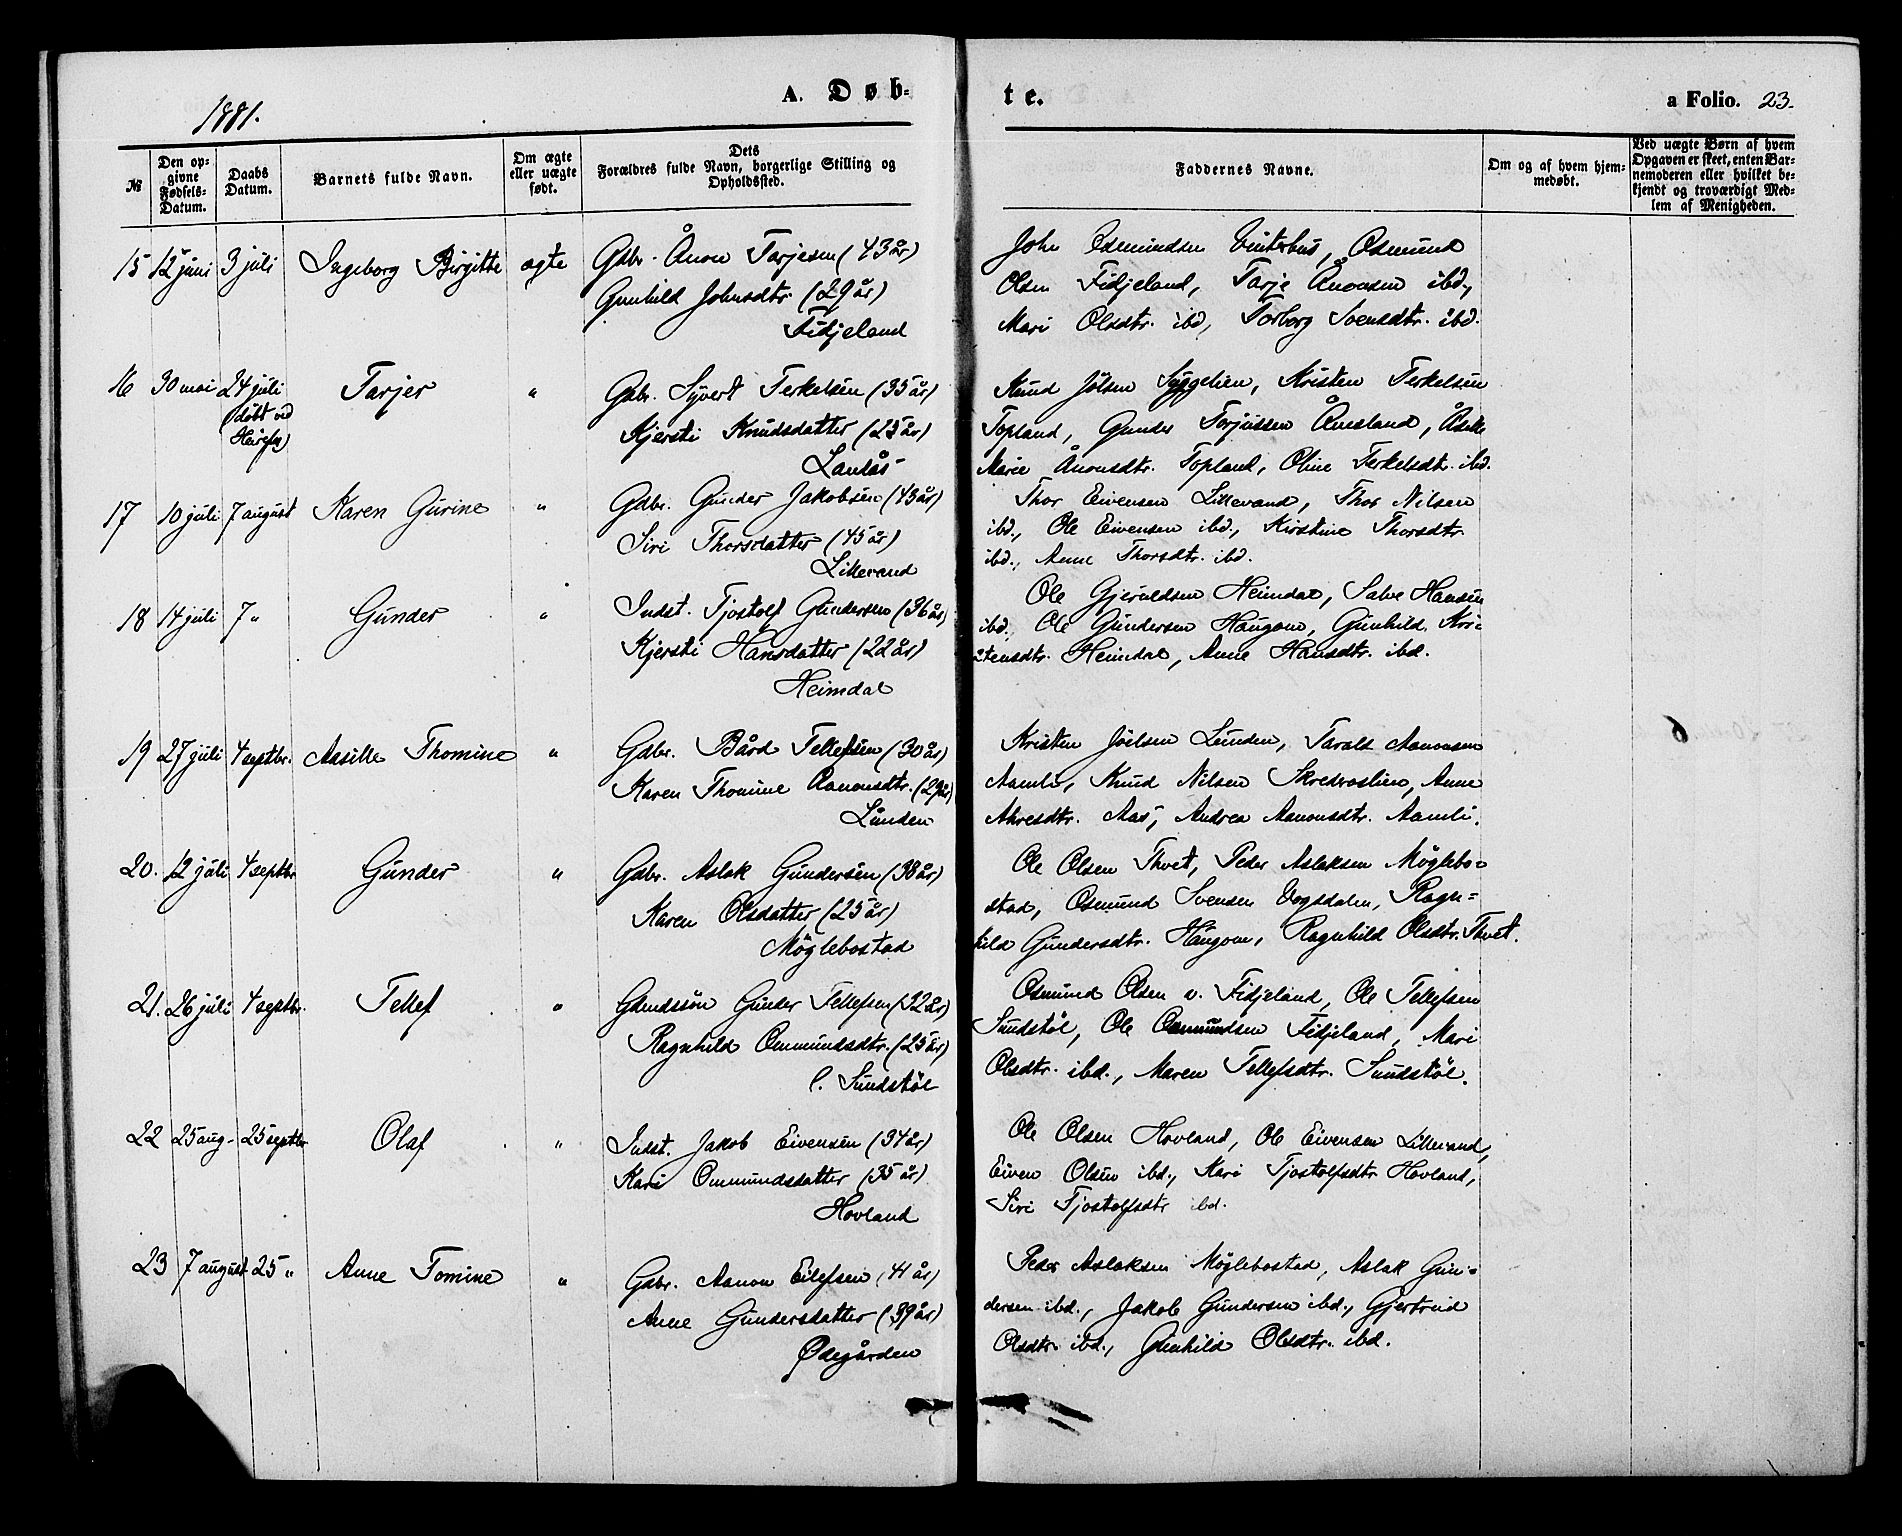 1881.
A. Døb-
te.
a Folio. 23.
№
Den op-
givne
Fødsels-
Datum.
Daabs
Datum.
Barnets fulde Navn.
Om ægte
eller uægte
født.
Dets
Forældres fulde Navn, borgerlige Stilling og
Opholdssted.
Faddernes Navne.
Om og af hvem hjem-
medøbt.
Ved uægte Børn af hvem
Opgaven er skeet, enten Bar-
nemoderen eller hvilket be-
kjendt og troværdigt Med-
lem af Menigheden.
15 12 juni 3 juli Ingeborg Birgitte ægte Gdbr. Ånon Tarjesen (43 år)
Gunhild Johnsdtr. (29 år)
Fidjeland
John Osmundsen Vinterhus, Osmund
Olsen Fidjeland, Tarje Ånonsen ibd.,
Mari Olsdtr. ibd, Torborg Svensdtr. ibd.
16 30 mai 24 juli Tarjer " Gdbr. Syvert Terkelsen (35 år)
(döbt ved
Kjersti Knudsdatter (25 år)
Lauås
Knud Jölsen Syggelien, Kristen Terkelsen
Topland, Gunder Torjussen Åmsland, Åsille
Marie Ånonsdtr. Topland, Oline Terkelsdtr. ibd.
17 10 juli 7 august Karen Gurine " Gdbr. Gunder Jakobsen (43 år)
Siri Thorsdatter (45 år)
Lillevand
Thor Eivensen Lillevand, Thor Nilsen
ibd., Ole Eivensen ibd., Kirstine Thorsdtr.
ibd., Anne Thorsdtr. ibd.
18 14 juli 7 " Gunder " Indst. Tjostolf Gundersen (36 år)
Kjersti Hansdatter (22 år)
Heimdal
Ole Gjeruldsen Heimdal, Salve Hansen
ibd. Ole Gundersen Haugom, Gunhild Kri-
stensdtr. Heimdal, Anne Hansdtr. ibd.
19 27 juli 4 septbr. Aasille Thomine " Gdbr. Bård Tellefsen (30 år)
Karen Thomine Aanonsdtr. (29 år)
Lunden
Kristen Joelsen Lunden, Tarald Aanonsen
Aamli, Knud Nilsen Skredvoslien, Anne
Akresdtr. Aas, Andrea Aanonsdtr. Aamli.
20. 12 juli 4 septbr Gunder " Gdbr. Aslak Gundersen (38 år)
Karen Olsdatter (25 år)
Möglebostad
Ole Olsen Thvet, Peder Aslaksen Möglebo-
stad, Osmund Svensen Vogsdalen, Ragn-
hild Gundersdtr. Haugom, Ragnhild Olsdtr. Thvet.
21. 26 juli 4 septbr. Tellef " Gdmdssön Gunder Tellefsen (32 år)
Ragnhild Ommundsdtr. (25 år)
l. Sundstöl
Osmund Olsen v. Fidjeland, Ole Tellefsen
Sundstöl, Ole Osmundsen Fidjeland, Mari
Olsdtr. ibd., Maren Tellefsdtr. Sundstöl.
22 25 aug- 25 septbr Olaf " Indst. Jakob Eivensen (34 år)
Kari Ommundsdatter (35 år)
Hovland
Ole Olsen Hovland, Ole Eivensen Lillevand,
Eiven Olsen ibd., Kari Tjostolfsdtr Hovland,
Siri Tjostolfsdtr ibd.
23 7 august 25 " Anne Tomine " Gdbr. Aanon Eilefsen (41 år)
Anne Gundersdatter (39 år)
Ødegården
Peder Aslaksen Möglebostad, Aslak Gun-
dersen ibd., Jakob Gundersen ibd., Gjertrud
Olsdtr. ibd., Gunhild Olsdtr. ibd.